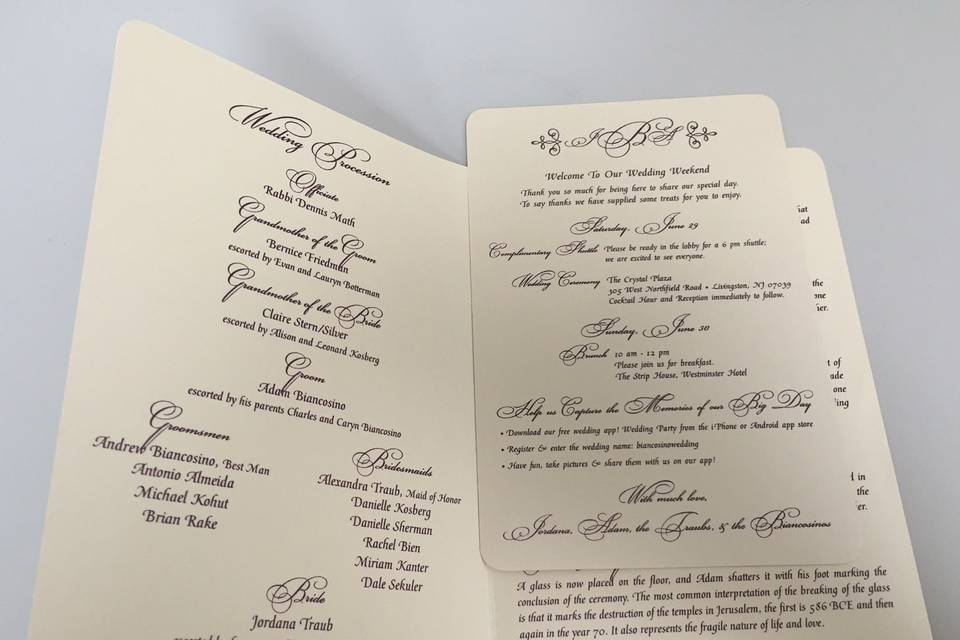 Wedding Procession
Officiate
Rabbi Dennis Math
Grandmother of the Groom
Bernice Friedman
escorted by Evan and Lauryn Botterman
Grandmother of the Bride
Claire Stern/Silver
escorted by Alison and Leonard Kosberg
Groom
Adam Biancosino
escorted by his parents Charles and Caryn Biancosino
Groomsmen
Andrew Biancosino, Best Man
Antonio Almeida
Michael Kohut
Brian Rake
Bridesmaids
Alexandra Traub, Maid of Honor
Danielle Kosberg
Danielle Sherman
Rachel Bien
Miriam Kanter
Dale Sekuler
Bride
Jordana Traub
JBA
Welcome To Our Wedding Weekend
Thank you so much for being here to share our special day.
To say thanks we have supplied some treats for you to enjoy.
Saturday, June 29
Complimentary Shuttle Please be ready in the lobby for a 6 pm shuttle;
we are excited to see everyone.
Wedding Ceremony The Crystal Plaza
305 West Northfield Road • Livingston, NJ 07039
Cocktail Hour and Reception immediately to follow.
Sunday, June 30
Brunch 10 am - 12 pm
Please join us for breakfast.
The Strip House, Westminster Hotel
Help us Capture the Memories of our Big Day
• Download our free wedding app! Wedding Party from the iPhone or Android app store
• Register & enter the wedding name: biancosinowedding
• Have fun, take pictures & share them with us on our app!
With much love,
Jordana, Adam, the Traubs, & the Biancosinos
ad
the
one
t of
ade
one
ing
in
the
A glass is now placed on the floor, and Adam shatters it with his foot marking the
conclusion of the ceremony. The most common interpretation of the breaking of the glass
is that it marks the destruction of the temples in Jerusalem, the first is 586 BCE and then
again in the year 70. It also represents the fragile nature of life and love.